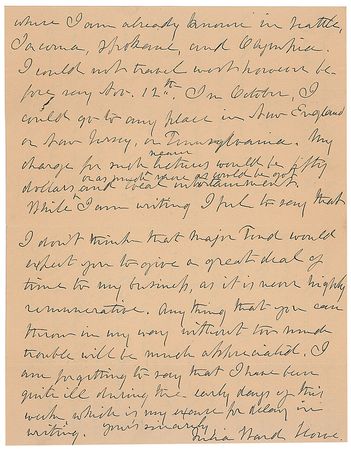 where I am already known in Seattle,
Tacoma, Spokane, and Olympia.
I could not travel west, however be-
fore, say Nov. 12th. In October, I
could go to any place in New England
or New Jersey, or Pennsylvania. My
charge for such lectures would be fifty
or as much more as would be got
dollars and local entertainment.
While I am writing I fail to say that
I don't think that Major Pond would
expect you to give a great deal of
time to my business, as it is never highly
remunerative. Anything that you can
throw in my way without too much
trouble will be much appreciated. I
am forgetting to say that I have been
quite ill during the early days of this
week which is my excuse for delay in
writing. Yours sincerely
Julia Ward Howe.